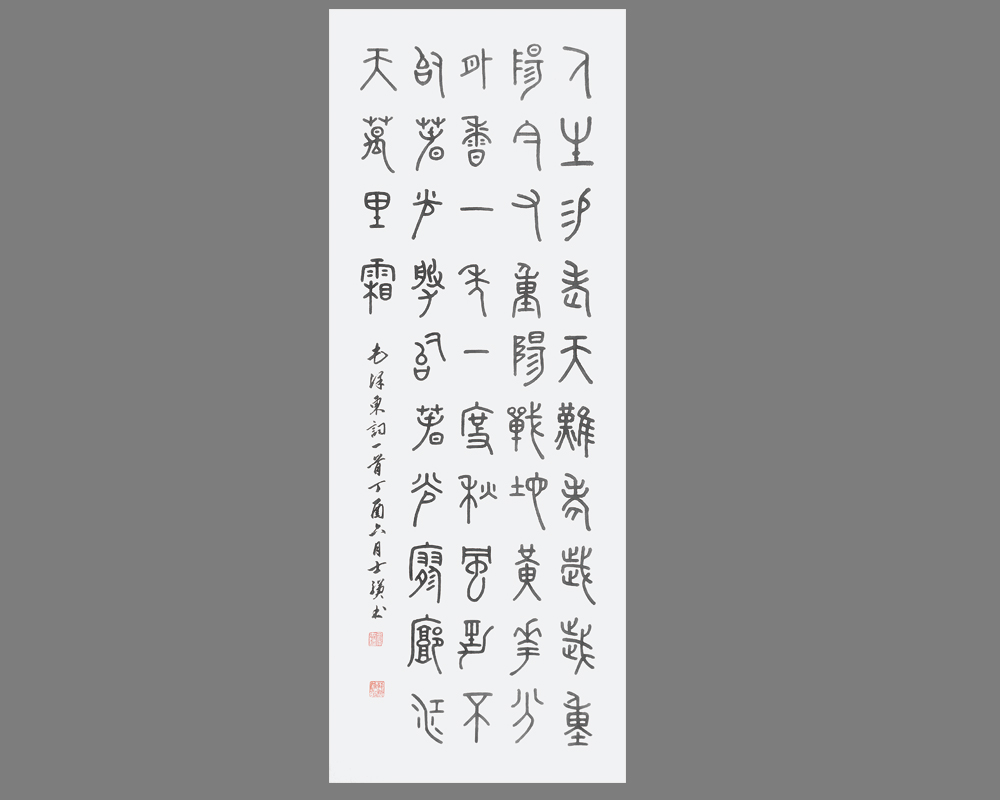 人生易老天難老歲歲重
陽今又重陽戰地黃花分
外香一年一度秋風勁不
似春光勝似春光寥廓江
天萬里霜
毛澤東詞一首丁酉六月士书